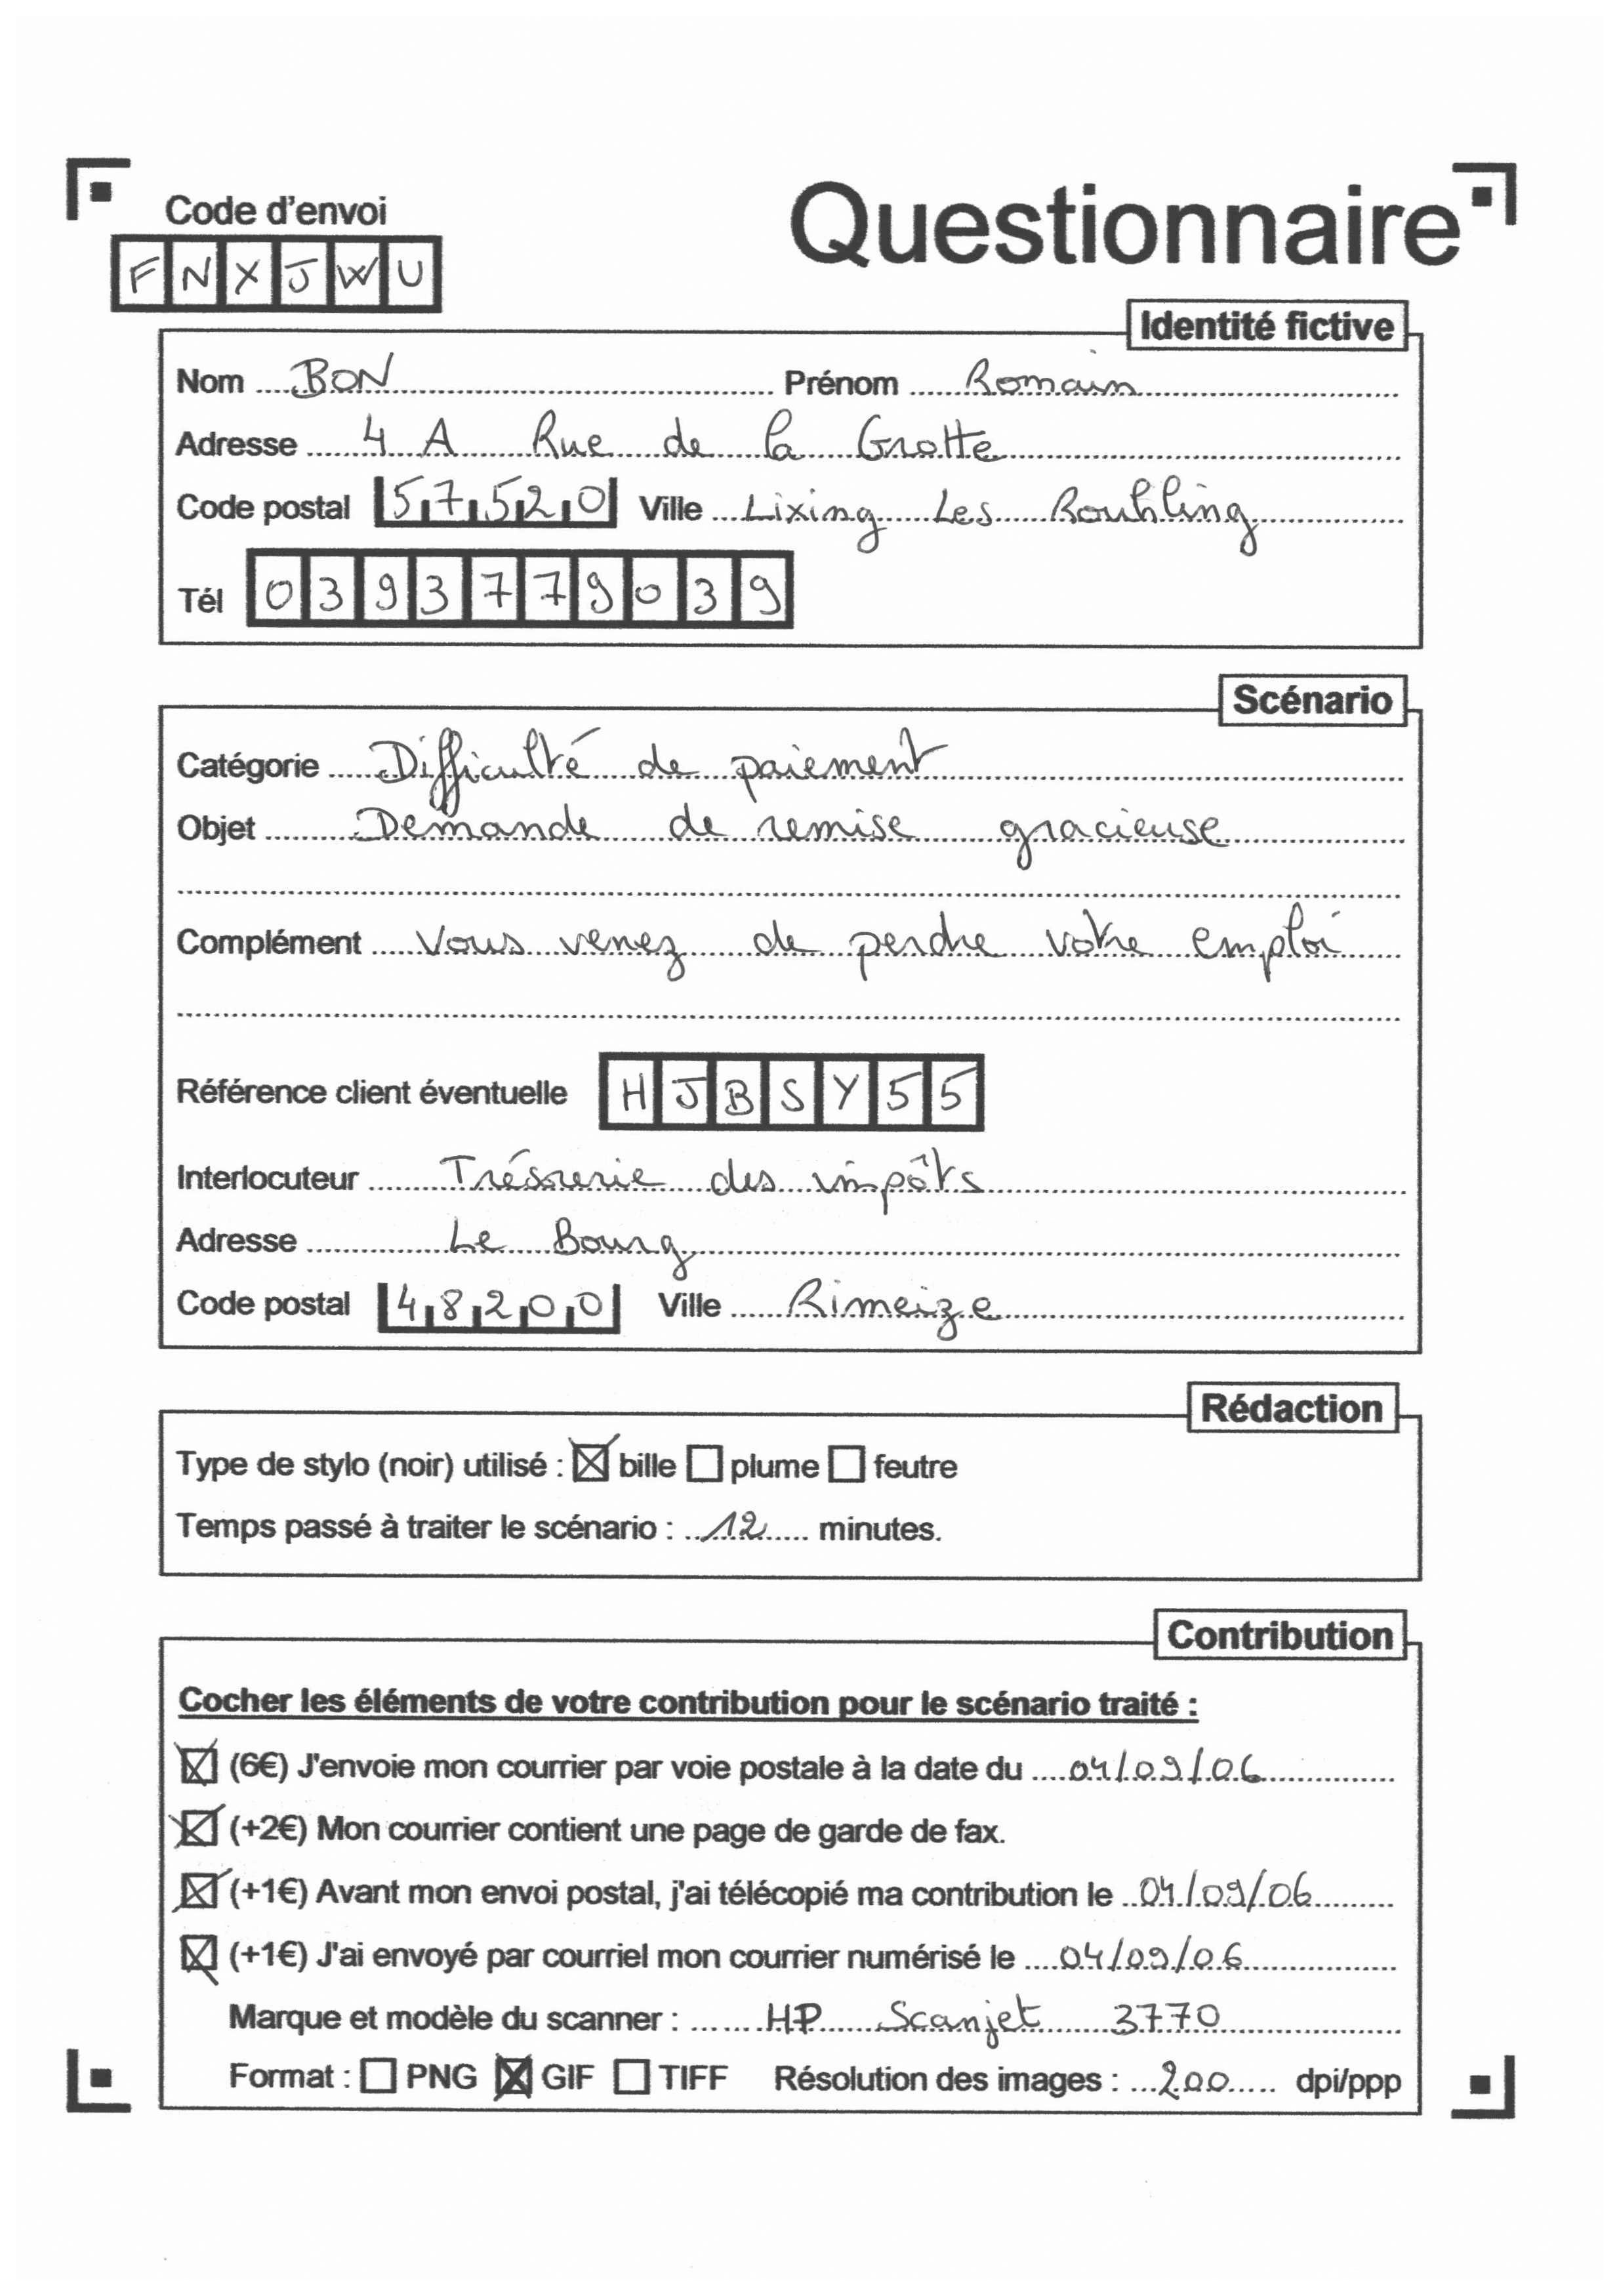 Questionnaire
Code d'envoi
FNXJWU
Identité fictive
Nom BON Prénom Romain
Adresse 4 A Rue de la Grotte
Code postal 57520 Ville Lixing Les Rouhling
Tél 0393779039
Scénario
Catégorie Difficulté de paiement
Objet Demande de remise gracieuse
Complément Vous venez de perdre votre emploi
Référence client éventuelle HJBSY55
Interlocuteur Trésorerie des impôts
Adresse Le Bourg
Code postal 48200 Ville Rimeize
Rédaction
Type de stylo (noir) utilisé : ☒ bille ☐ plume ☐ feutre
Temps passé à traiter le scénario : 12 minutes.
Contribution
Cocher les éléments de votre contribution pour le scénario traité :
☒ (6€) J'envoie mon courrier par voie postale à la date du 04/09/06
☒ (+2€) Mon courrier contient une page de garde de fax.
☒ (+1€) Avant mon envoi postal, j'ai télécopié ma contribution le 04/09/06
☒ (+1€) J'ai envoyé par courriel mon courrier numérisé le 04/09/06
Marque et modèle du scanner : HP Scanjet 3770
Format : ☐ PNG ☒ GIF ☐ TIFF Résolution des images : 200 dpi/ppp